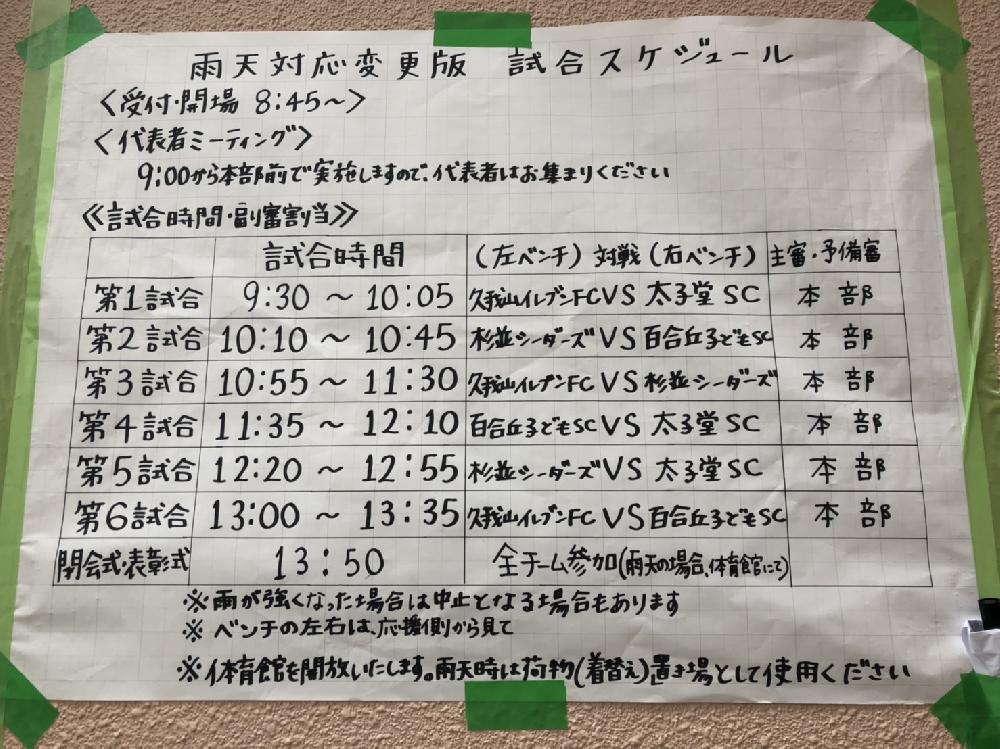 雨天対応変更版 試合スケジュール
〈受付・開場 8:45〜〉
〈代表者ミーティング〉
9:00から本部前で実施しますので、代表者はお集まりください
《試合時間・副審割当》
試合時間 (左ベンチ) 対戦 (右ベンチ) 主審・予備審
第1試合 9:30 〜 10:05 久我山イレブンFC VS 太子堂SC 本部
第2試合 10:10 〜 10:45 杉並シーダーズ VS 百合丘子どもSC 本部
第3試合 10:55 〜 11:30 久我山イレブンFC VS 杉並シーダーズ 本部
第4試合 11:35 〜 12:10 百合丘子どもSC VS 太子堂SC 本部
第5試合 12:20 〜 12:55 杉並シーダーズ VS 太子堂SC 本部
第6試合 13:00 〜 13:35 久我山イレブンFC VS 百合丘子どもSC 本部
閉会式・表彰式 13:50 全チーム参加(雨天の場合、体育館にて)
※雨が強くなった場合は中止となる場合もあります
※ベンチの左右は、応援側から見て
※体育館を開放いたします。雨天時は荷物(着替え)置き場として使用ください